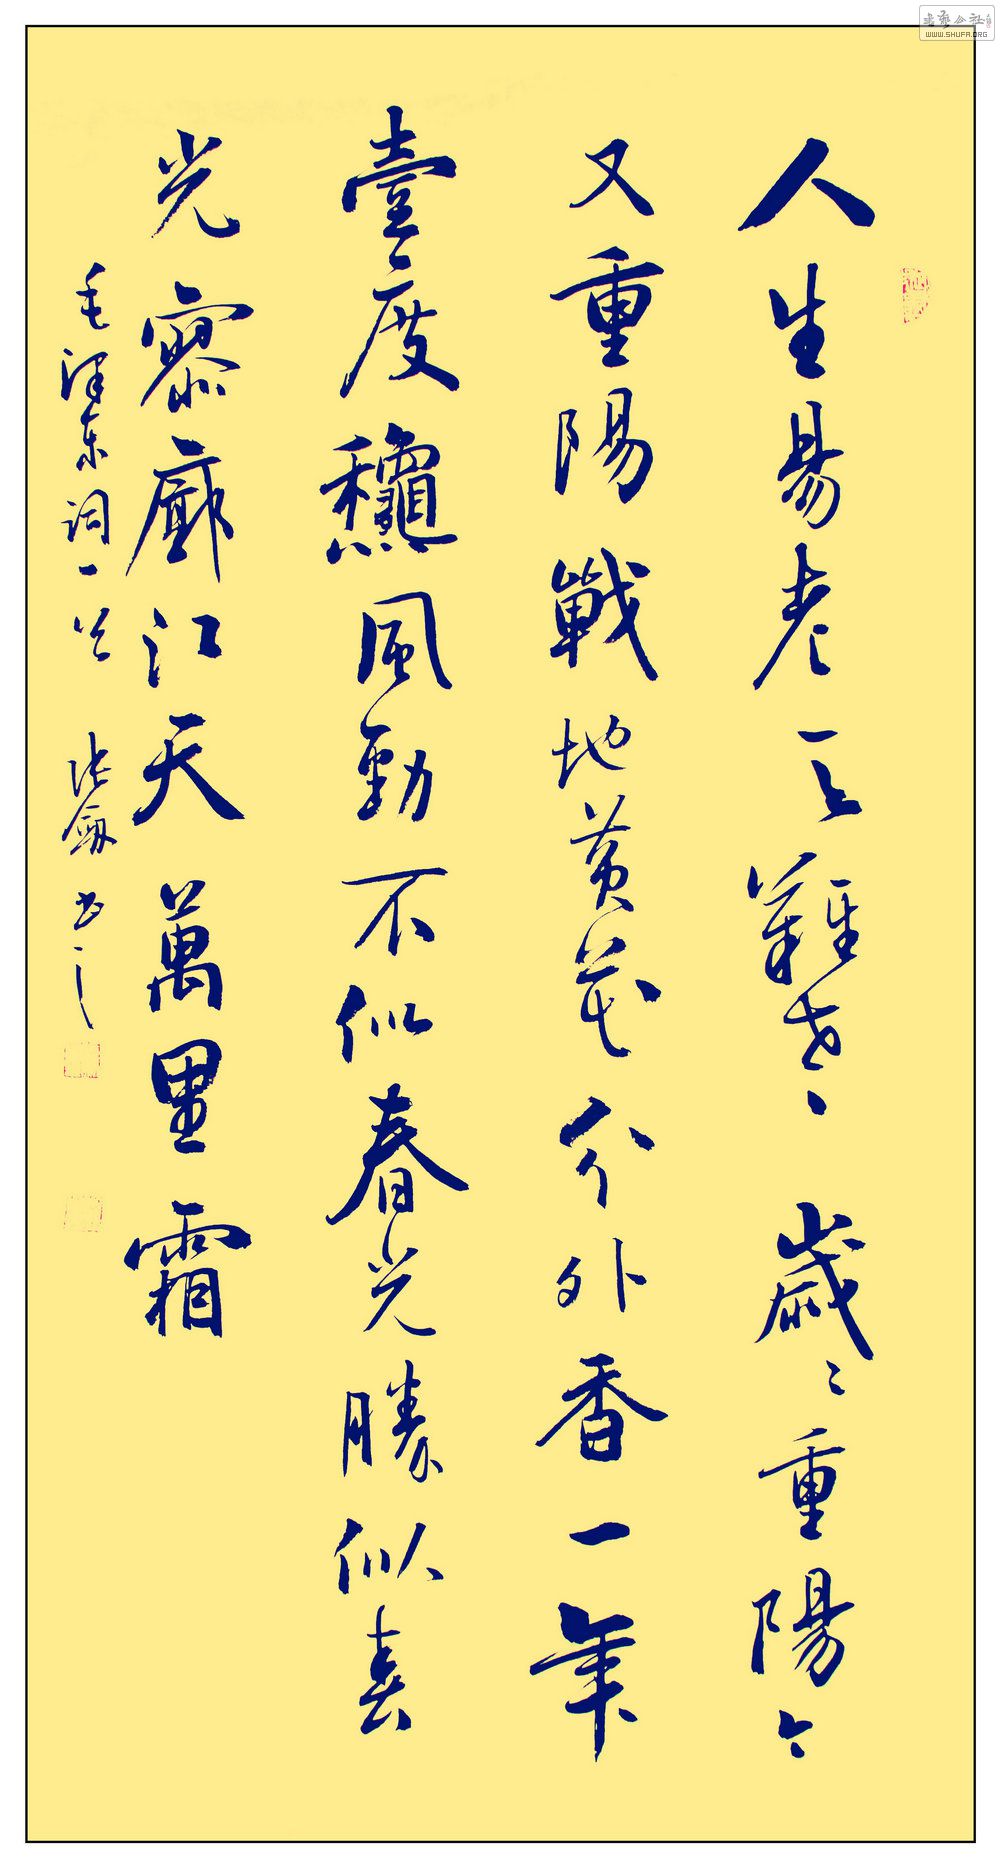 人生易老天難老歲々重陽今
又重陽戰地黃花分外香一年
壹度龝風勁不似春光勝似春
光寥廓江天萬里霜
毛泽东词一首 张劍书
书艺公社
WWW.SHUFA.ORG